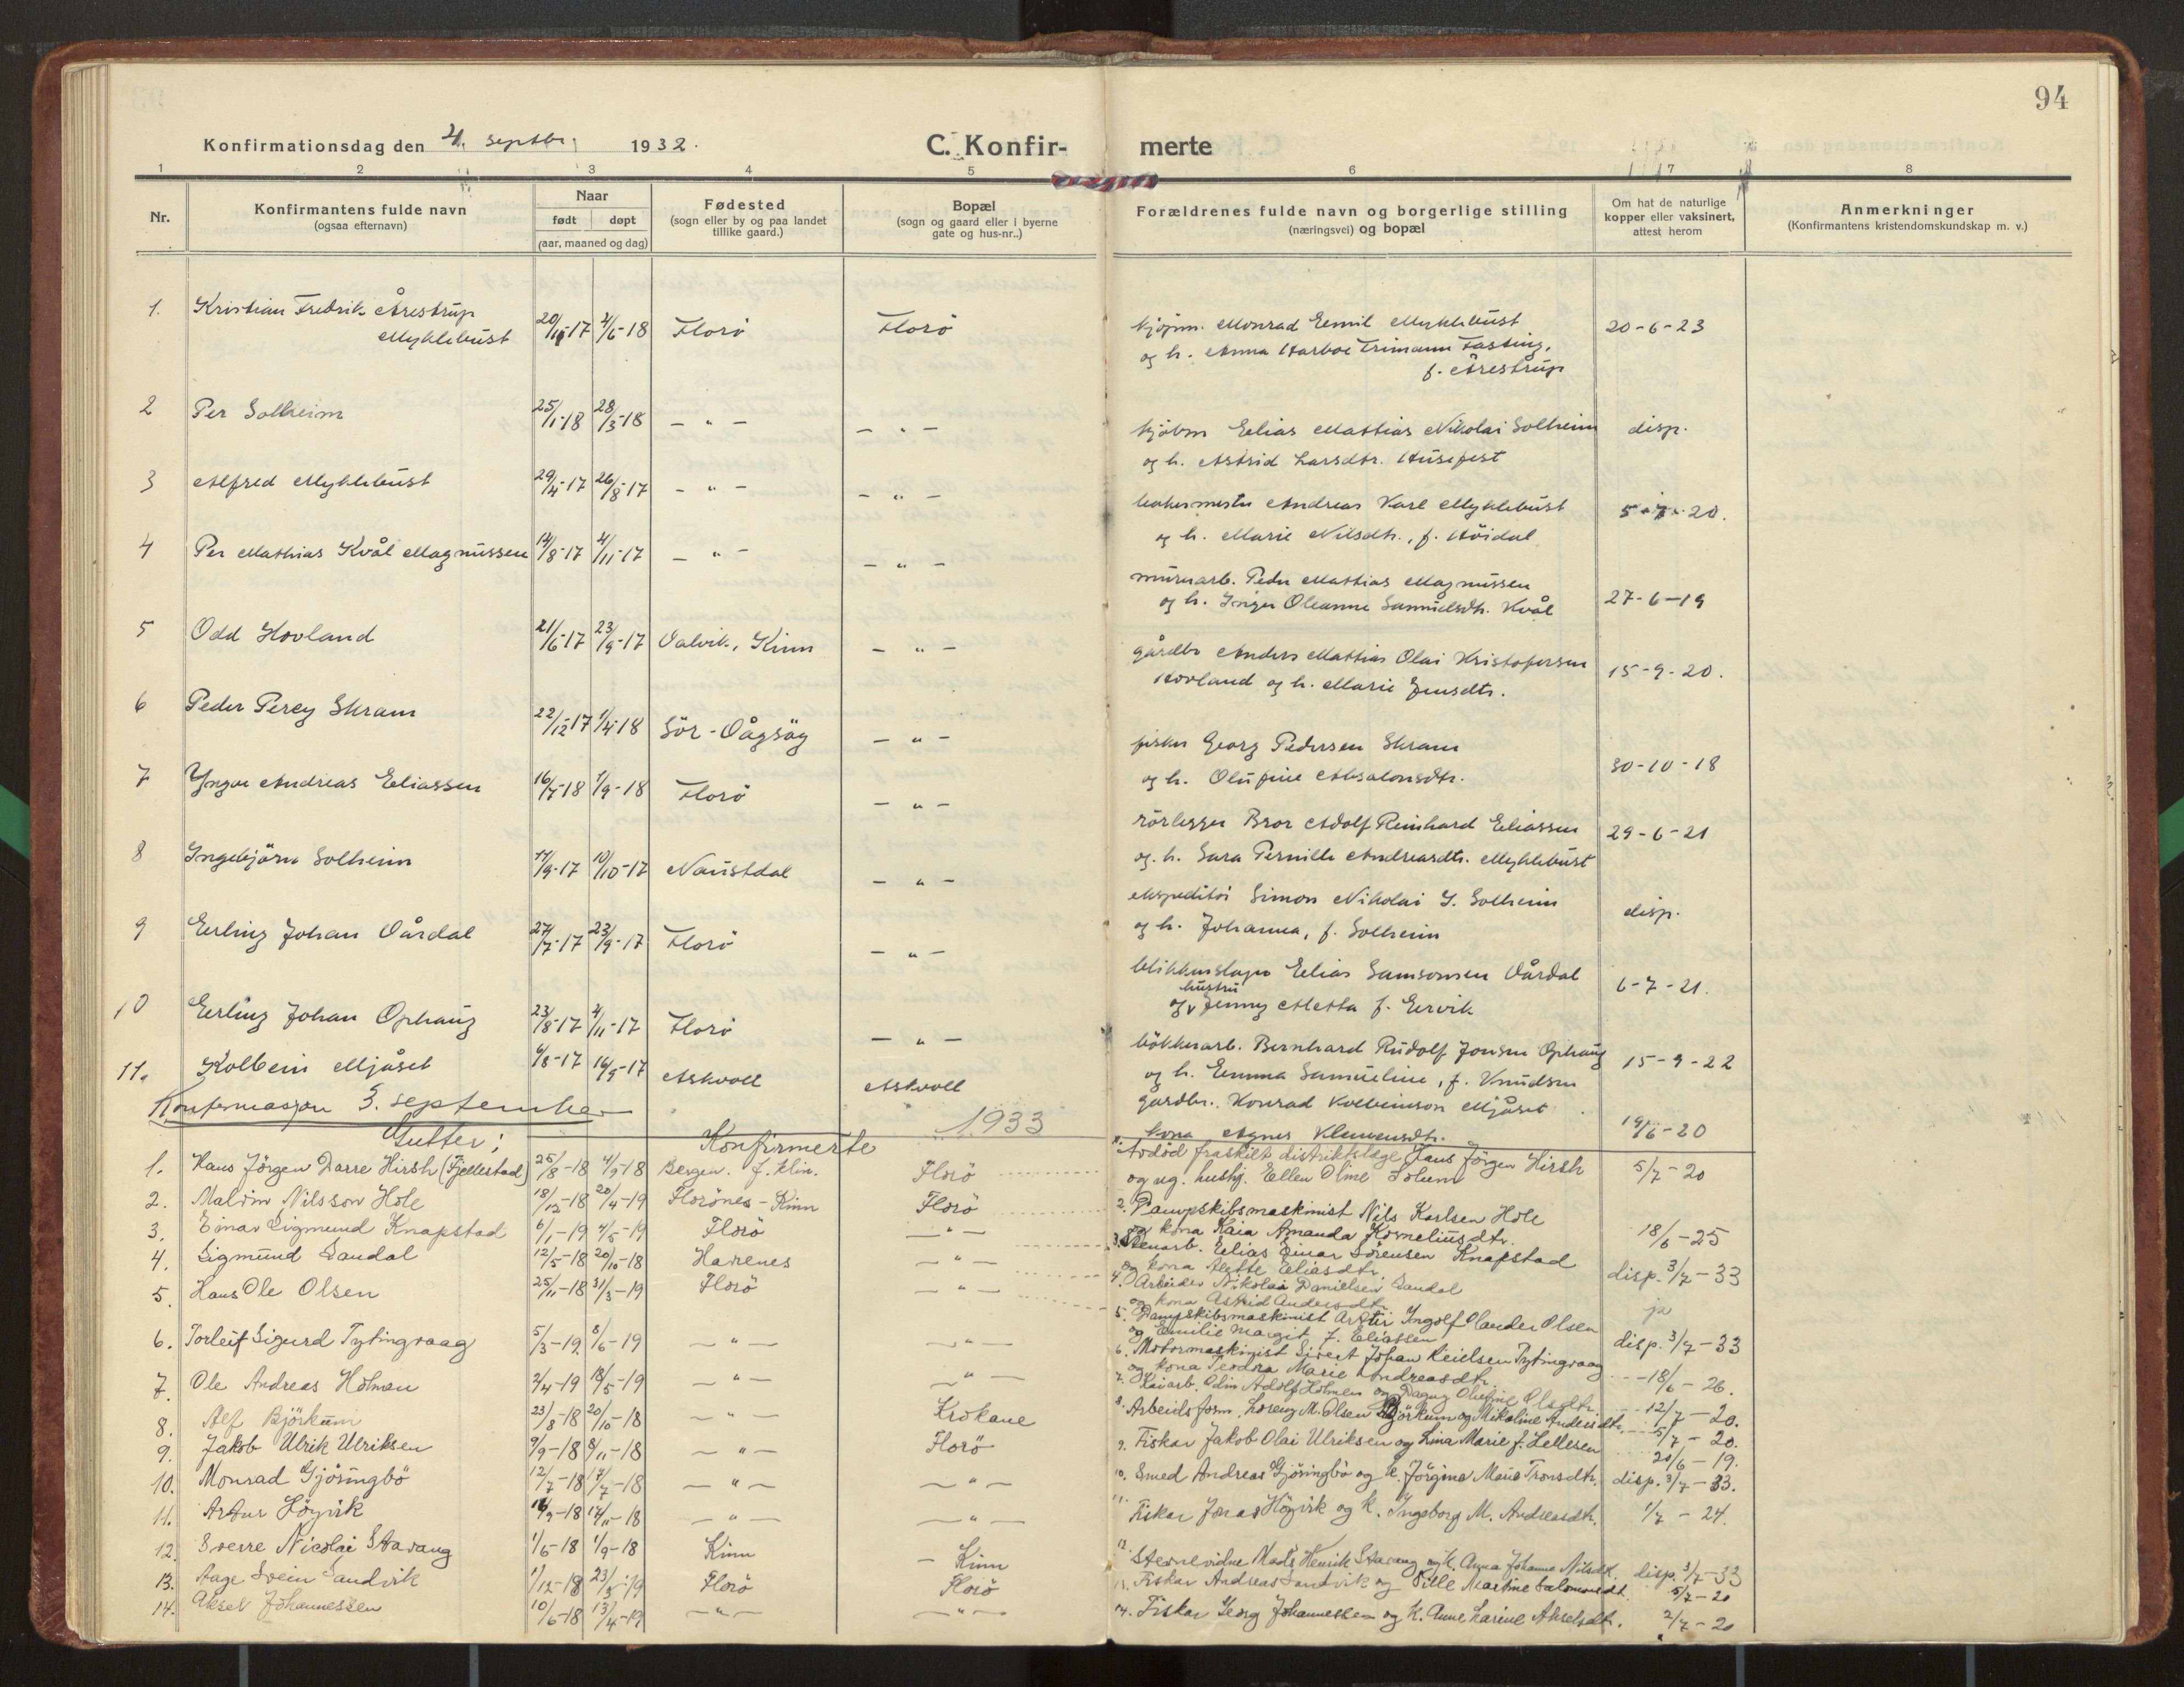 94
Konfirmationsdag den 4. septbr. 1932.
C. Konfir- merte
1 2 3 4 5 6 7 8
Nr.
Konfirmantens fulde navn
(ogsaa efternavn)
Naar
født døpt
(aar, maaned og dag)
Fødested
(sogn eller by og paa landet
tillike gaard.)
Bopæl
(sogn og gaard eller i byerne
gate og hus-nr.)
Forældrenes fulde navn og borgerlige stilling
(næringsvei) og bopæl
Om hat de naturlige
kopper eller vaksinert,
attest herom
Anmerkninger
(Konfirmantens kristendomskundskap m. v.)
1. Kristian Fredrik Årestrup
Myklebust 20/11-17 2/6-18 Florö Florö
kjøpm. Monrad Emil Myklebust
og h. Anna Harboe Frimann Fasting,
f. Årestrup
20-6-23
2 Per Solheim 25/1-18 28/3-18 – " – – " –
kjöbm Elias Mattias Nikolai Solheim
og h. Astrid Larsdtr. Husefest
disp.
3 Alfred Myklebust 29/4-17 26/8-17 – " – – " –
bakermester Andreas Karl Myklebust
og h. Marie Nilsdtr., f. Höidal
5-7-20.
4 Per Mathias Kvål Magnussen 14/8-17 4/11-17 – " – – " –
murarb. Peder Mattias Magnussen
og h. Inger Oleanne Samuelsdtr. Kvål
27-6-19
5 Odd Hovland 21/6-17 23/9-17 Valvik, Kinn – " –
gårdbr Anders Mattias Olai Kristofersen
Hovland og h. Marie Jensdtr.
15-9-20.
6 Peder Percy Skram 22/12-17 1/4-18 Sör-Vågsöy – " –
fisker Georg Pedersen Skram
og h. Olufine Absalonsdtr.
30-10-18
7 Yngve Andreas Eliassen 16/7-18 1/9-18 Florö – " –
rörlegger Bror Adolf Reinhard Eliassen
og. h. Sara Pernille Andreasdtr. Myklebust
29-6-21
8 Ingebjörn Solheim 17/9-17 10/10-17 Naustdal – " –
ekspeditör Simon Nikolai S. Solheim
og h. Johanna, f. Solheim
disp.
9 Erling Johan Vårdal 27/7-17 23/9-17 Florö – " –
blikkenslager Elias Samsonsen Vårdal
hustru
og Jenny Aletta f. Ervik
6-7-21.
10 Erling Johan Ophaug 23/8-17 4/11-17 Florö – " –
bökkerarb. Bernhard Rudolf Jonsen Ophaug
og h. Emma Samueline, f. Knudsen
15-9-22
11. Kolbein Mjåset 6/8-17 16/9-17 Askvoll Askvoll
gardbr. Konrad Kolbeinson Mjåset
kona Agnes Klemensdtr.
19/6-20
Konfirmasjon 3. september 1933
Gutter; Konfirmerte
1. Hans Jörgen Darre Hirsh (Fjellestad) 25/8-18 4/9-18 Bergen. f. klin. Florö
1. Avdöd fraskilt distriktslege Hans Jörgen Hirsh
og ug. hushj. Ellen Oline Solum
5/7-20
2. Malvin Nilsson Hole 18/12-18 20/4-19 Florönes-Kinn Florö
2. Dampskibsmaskinist Nils Karlsen Hole
og kona Kaia Amanda Korneliusdtr.
18/6-25
3. Einar Sigmund Knapstad 6/1-19 4/5-19 Florö – " –
3. Stenarb. Elias Einar Sörensen Knapstad
og kona Agathe Eliasdtr
disp. 3/7-33
4. Sigmund Sandal 12/5-18 20/10-18 Havrenes – " –
4. Arbeider Nikolai Danielsen Sandal
og kona Astrid Andersdtr.
ja
5. Hans Ole Olsen 25/11-18 31/3-19 Florö – " –
5. Dampskibsmaskinist Artur Ingolf Olander Olsen
og Emilie Margit f. Eliassen
disp. 3/7-33
6. Torleif Sigurd Tytingvaag 5/3-19. 8/6-19 – " – – " –
6. Motormaskinist Sivert Johan Reielsen Tytingvaag
og kona Teodora Marie Andreasdtr.
18/6-26.
7. Ole Andreas Holmen 2/4-19 18/5-19 – " – – " –
7. Kaiarb. Odin Adolf Holmen og Dagny Olufine Olsdtr.
12/7-20.
8. Alf Björkum 23/8-18 20/10-18 – " – Krokane
8. Arbeidsform. Lorenz M. Olsen Björkum og Nikoline Andersdtr.
5/7-20.
9. Jakob Ulrik Ulriksen 9/9-18 8/11-18 – " – Florö
9. Fiskar Jakob Olai Ulriksen og Lina Marie f. Lellesen
20/6-19.
10. Monrad Gjösingbö 12/7-18 17/7-18 – " – – " –
10. Smed Andreas Gjösingbö og k. Jörgine Marie Tronsdtr.
disp. 3/7-33.
11. Artur Högvik 16/9-18 17/11-18 – " – – " –
11. Fiskar Jonas Högvik og k. Ingeborg M. Andreasdtr.
1/7-24.
12. Sverre Nicolai Stavang 1/6-18 1/9-18 Kinn – Kinn
12. Stevnevidne Mads Henrik Stavang og k. Anna Johanne Nilsdtr.
disp. 3/7-33
13. Aage Svein Sandvik 1/12-18 23/3-19 Florö Florö
13. Fiskar Andreas Sandvik og Pille Martine Salomonsdt.
5/7-20
14. Aksel Johannessen 10/6-18 13/4-19 – " – – " –
14. Fiskar Georg Johannessen og k. Anne Larine Akselsdtr.
2/7-20